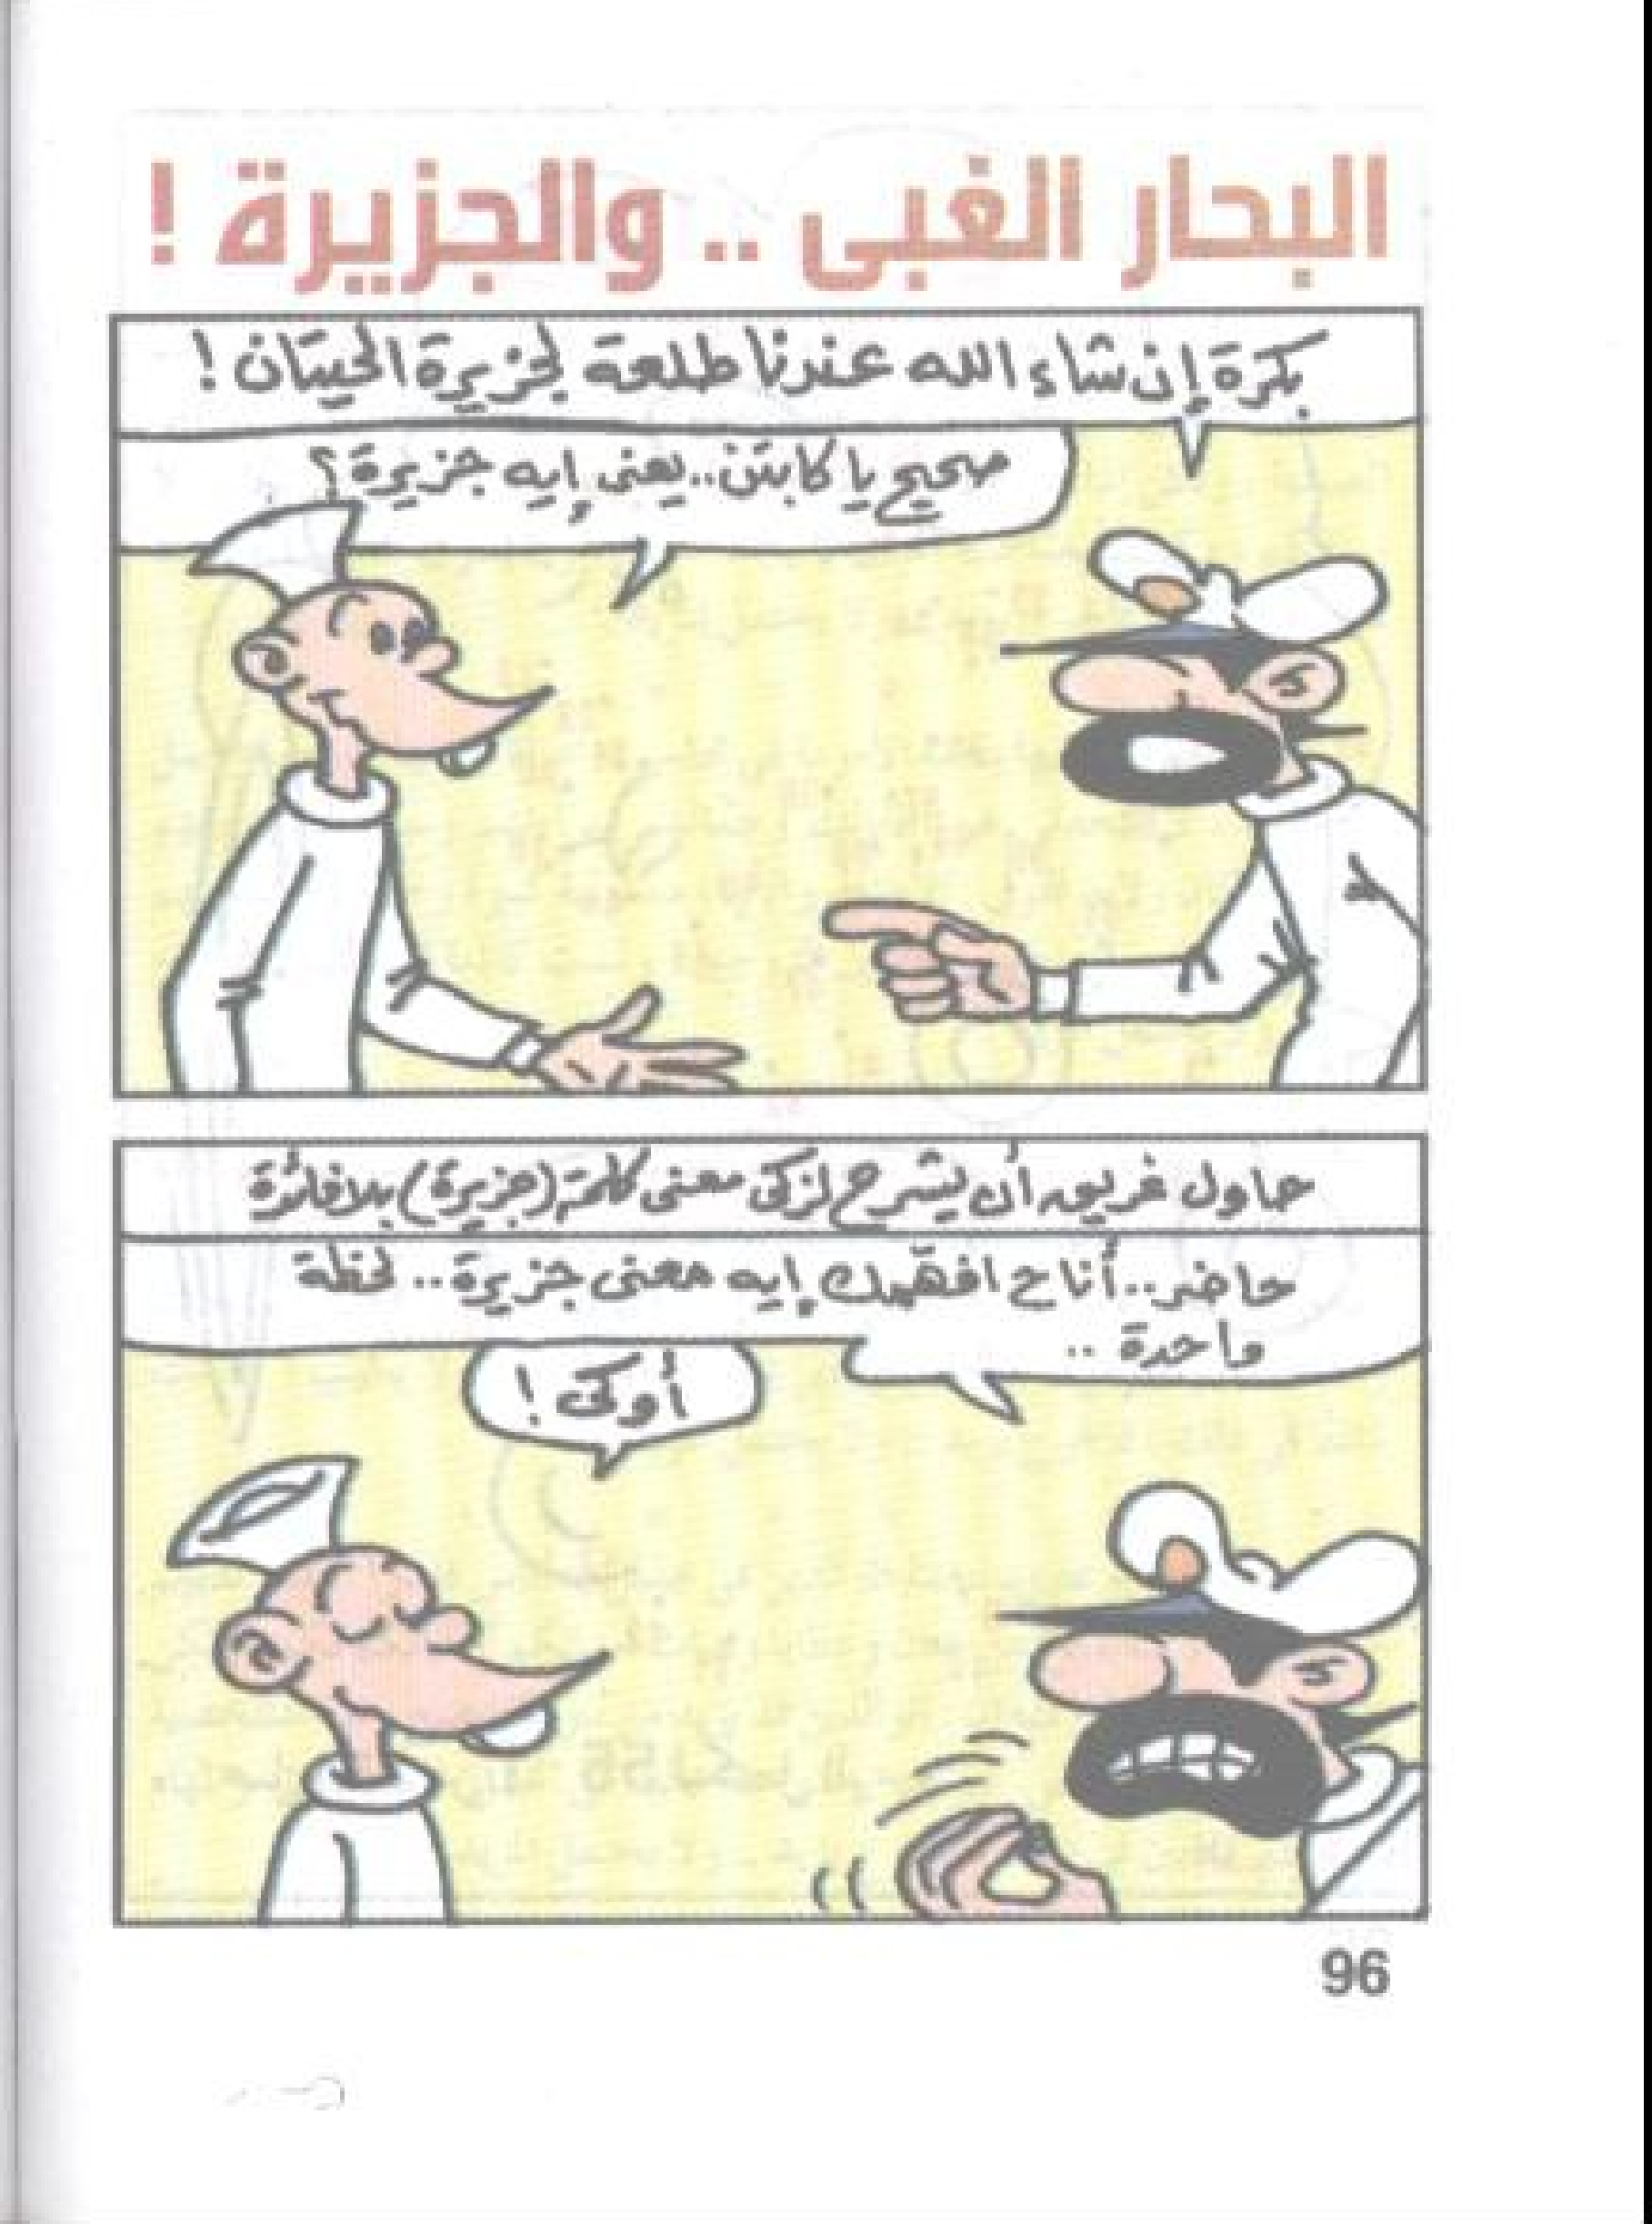 البحار الغبى .. والجزيرة !
بكرة إن شاء الله عندنا طلعة لجزيرة الحيتان !
صحيح يا كابتن.. يعنى إيه جزيرة ؟
حاول غريق أن يشرح لزكى معنى كلمة (جزيرة) بلا فائدة
حاضر.. أنا ح افهّمك إيه معنى جزيرة.. لحظة
واحدة ..
أوكى !
96